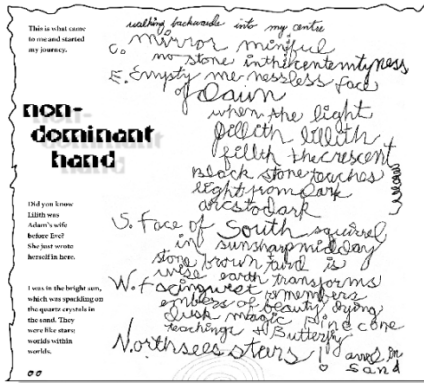 This is what came
to me and started
my journey.
non-
dominant
hand
Did you know
Lilith was
Adam's wife
before Eve?
She just wrote
herself in here.
I was in the bright sun,
which was sparkling on
the quartz crystals in
the sand. They
were like stars:
worlds within
worlds.
walking backwards into my centre
C. mirror mindful
no stone inthecentemtyness
E. Empty me nessless face
of Dawn
when the light
fillith lillith
fillith thecrescent
Black stone touches
light from dark
arcstodark
S. Face of South squirrel
in sunsharpmidday
stone brown bird is
wise earth transforms
W. Facingwest remembers
embers of beauty dying
dusk magic pinecone
teachings Butterfly
Northsees stars!
and in
sand